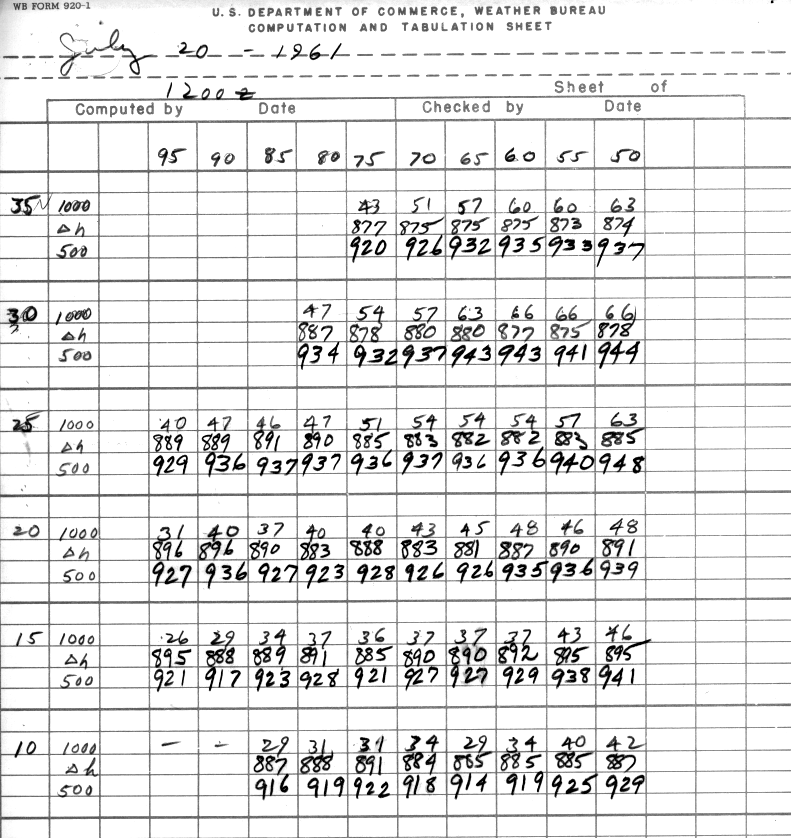 WB FORM 920-1
U. S. DEPARTMENT OF COMMERCE, WEATHER BUREAU
COMPUTATION AND TABULATION SHEET
July 20 - 1961
1200 z
Sheet of
Computed by Date Checked by Date
95 90 85 80 75 70 65 60 55 50
35 1000 43 51 57 60 60 63
Δh 877 875 875 875 873 874
500 920 926 932 935 933 937
30 1000 47 54 57 63 66 66 66
Δh 887 878 880 880 877 875 878
500 934 932 937 943 943 941 944
25 1000 40 47 46 47 51 54 54 54 57 63
Δh 889 889 891 890 885 883 882 882 883 885
500 929 936 937 937 936 937 936 936 940 948
20 1000 31 40 37 40 40 43 45 48 46 48
Δh 896 896 890 883 888 883 881 887 890 891
500 927 936 927 923 928 926 926 935 936 939
15 1000 26 29 34 37 36 37 37 37 43 46
Δh 895 888 889 891 885 890 890 892 895 895
500 921 917 923 928 921 927 927 929 938 941
10 1000 — – 29 31 31 34 29 34 40 42
Δh 887 888 891 884 885 885 885 887
500 916 919 922 918 914 919 925 929